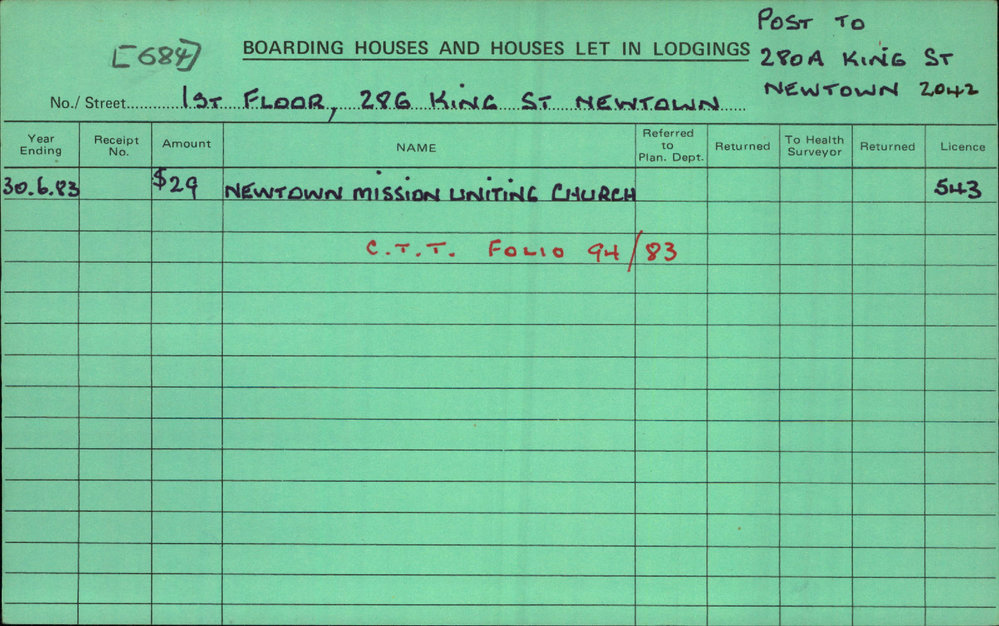 [684]
BOARDING HOUSES AND HOUSES LET IN LODGINGS
POST TO
280A KING ST
NEWTOWN 2042
No./ Street 1ST FLOOR, 286 KING ST NEWTOWN
Year Ending Receipt No. Amount NAME Referred to Plan. Dept. Returned To Health Surveyor Returned Licence
30.6.83 $29 NEWTOWN MISSION UNITING CHURCH 543
C.T.T. FOLIO 94/83